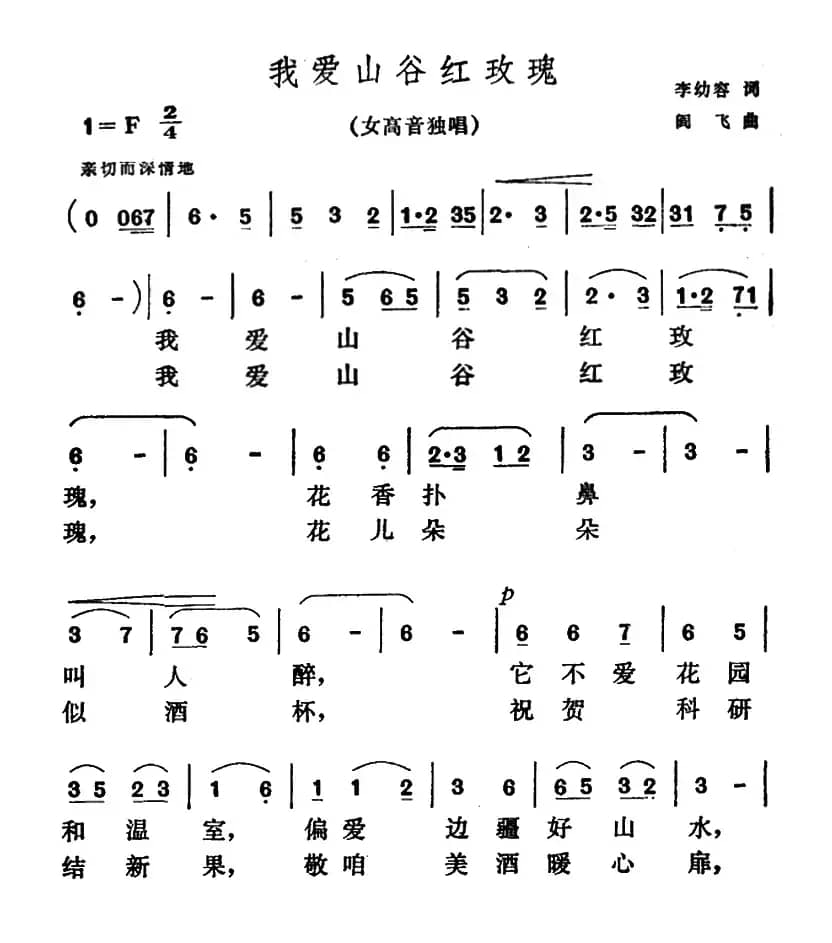 我爱山谷红玫瑰
1=F 2/4
(女高音独唱)
李幼容 词
阎 飞 曲
亲切而深情地
(0 067 | 6· 5 | 5 3 2 | 1·2 35 | 2· 3 | 2·5 32 | 31 7 5 |
6 - ) | 6 - | 6 - | 5 6 5 | 5 3 2 | 2· 3 | 1·2 71 |
我 爱 山 谷 红 玫
我 爱 山 谷 红 玫
6 - | 6 - | 6 6 | 2·3 1 2 | 3 - | 3 - |
瑰, 花 香 扑 鼻
瑰, 花 儿 朵 朵
p
3 7 | 7 6 5 | 6 - | 6 - | 6 6 7 | 6 5 |
叫 人 醉, 它 不 爱 花 园
似 酒 杯, 祝 贺 科 研
3 5 2 3 | 1 6 | 1 1 2 | 3 6 | 6 5 3 2 | 3 - |
和 温 室, 偏 爱 边 疆 好 山 水,
结 新 果, 敬 咱 美 酒 暖 心 扉,